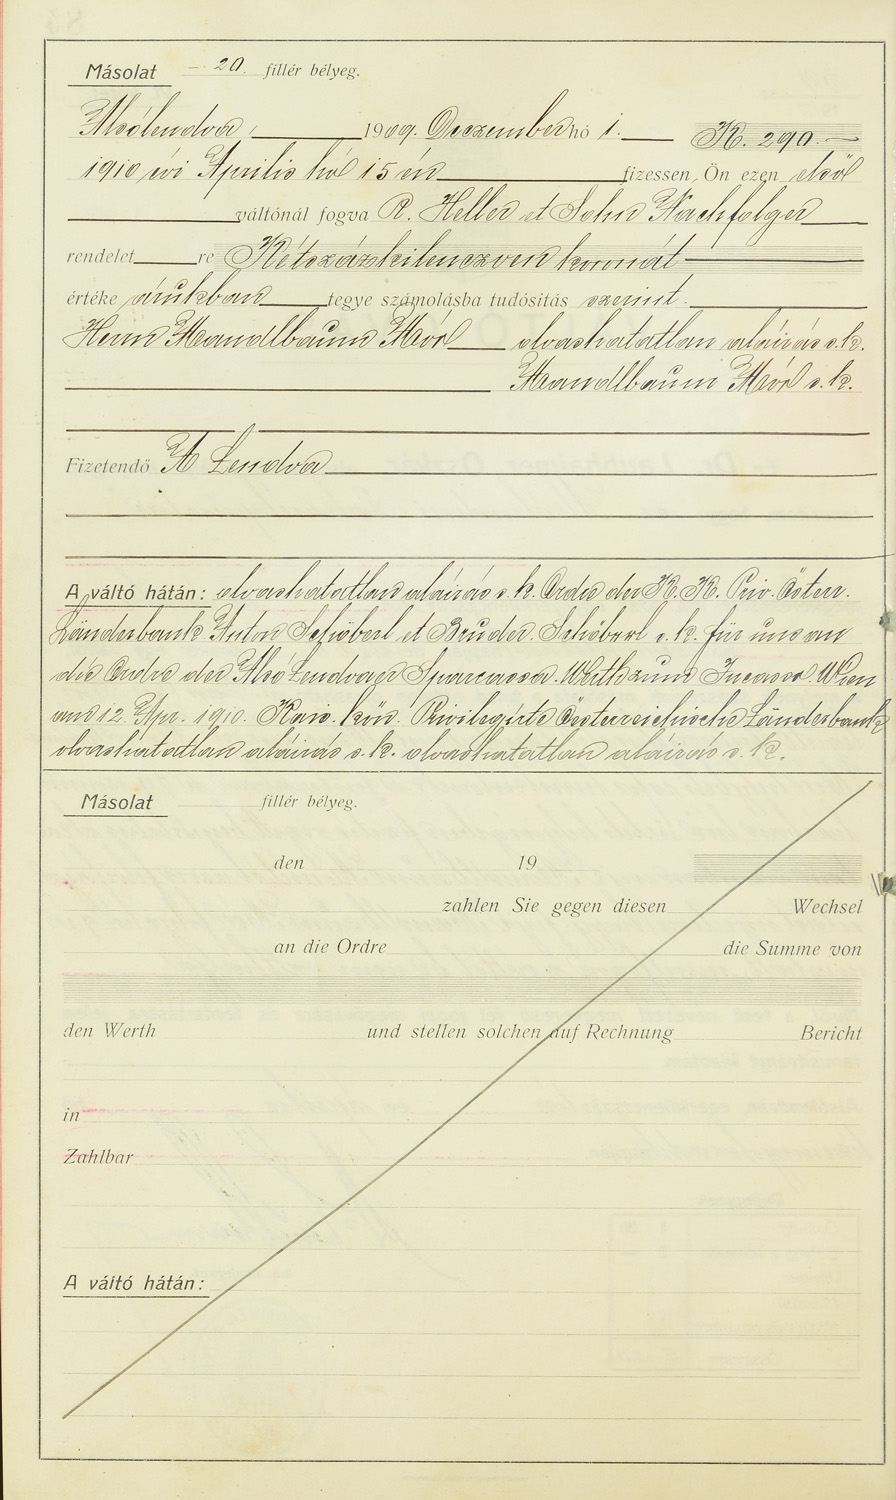 Másolat – 20. fillér bélyeg.
Alsólendva, 1909. Deczember hó 1. K. 290.–
1910 évi Április hó 15 én fizessen Ön ezen első
váltónál fogva R. Heller et Sohn Nachfolger
rendelet re Kétszázkilenczven koronát
értéke árukban tegye számolásba tudósítás szerint.
Herrn Mandlbaum Mór olvashatatlan aláírás s.k.
Mandlbaum Mór s.k.
Fizetendő A Lendva
A váltó hátán: olvashatatlan aláírás s.k. Ordre der K. K. Priv. Österr.
Länderbank Anton Schöberl et Bruder. Schöberl s.k. für uns an
die Ordre der Alsó Lendvaer Sparcassa. Werth zum Incasso. Wien
am 12. Apr. 1910. Kais. kön. Privilegirte Österreichische Länderbank
olvashatatlan aláírás s.k. olvashatatlan aláírás s.k.
Másolat fillér bélyeg.
den 19
zahlen Sie gegen diesen Wechsel
an die Ordre die Summe von
den Werth und stellen solchen auf Rechnung Bericht
in
Zahlbar
A váltó hátán: